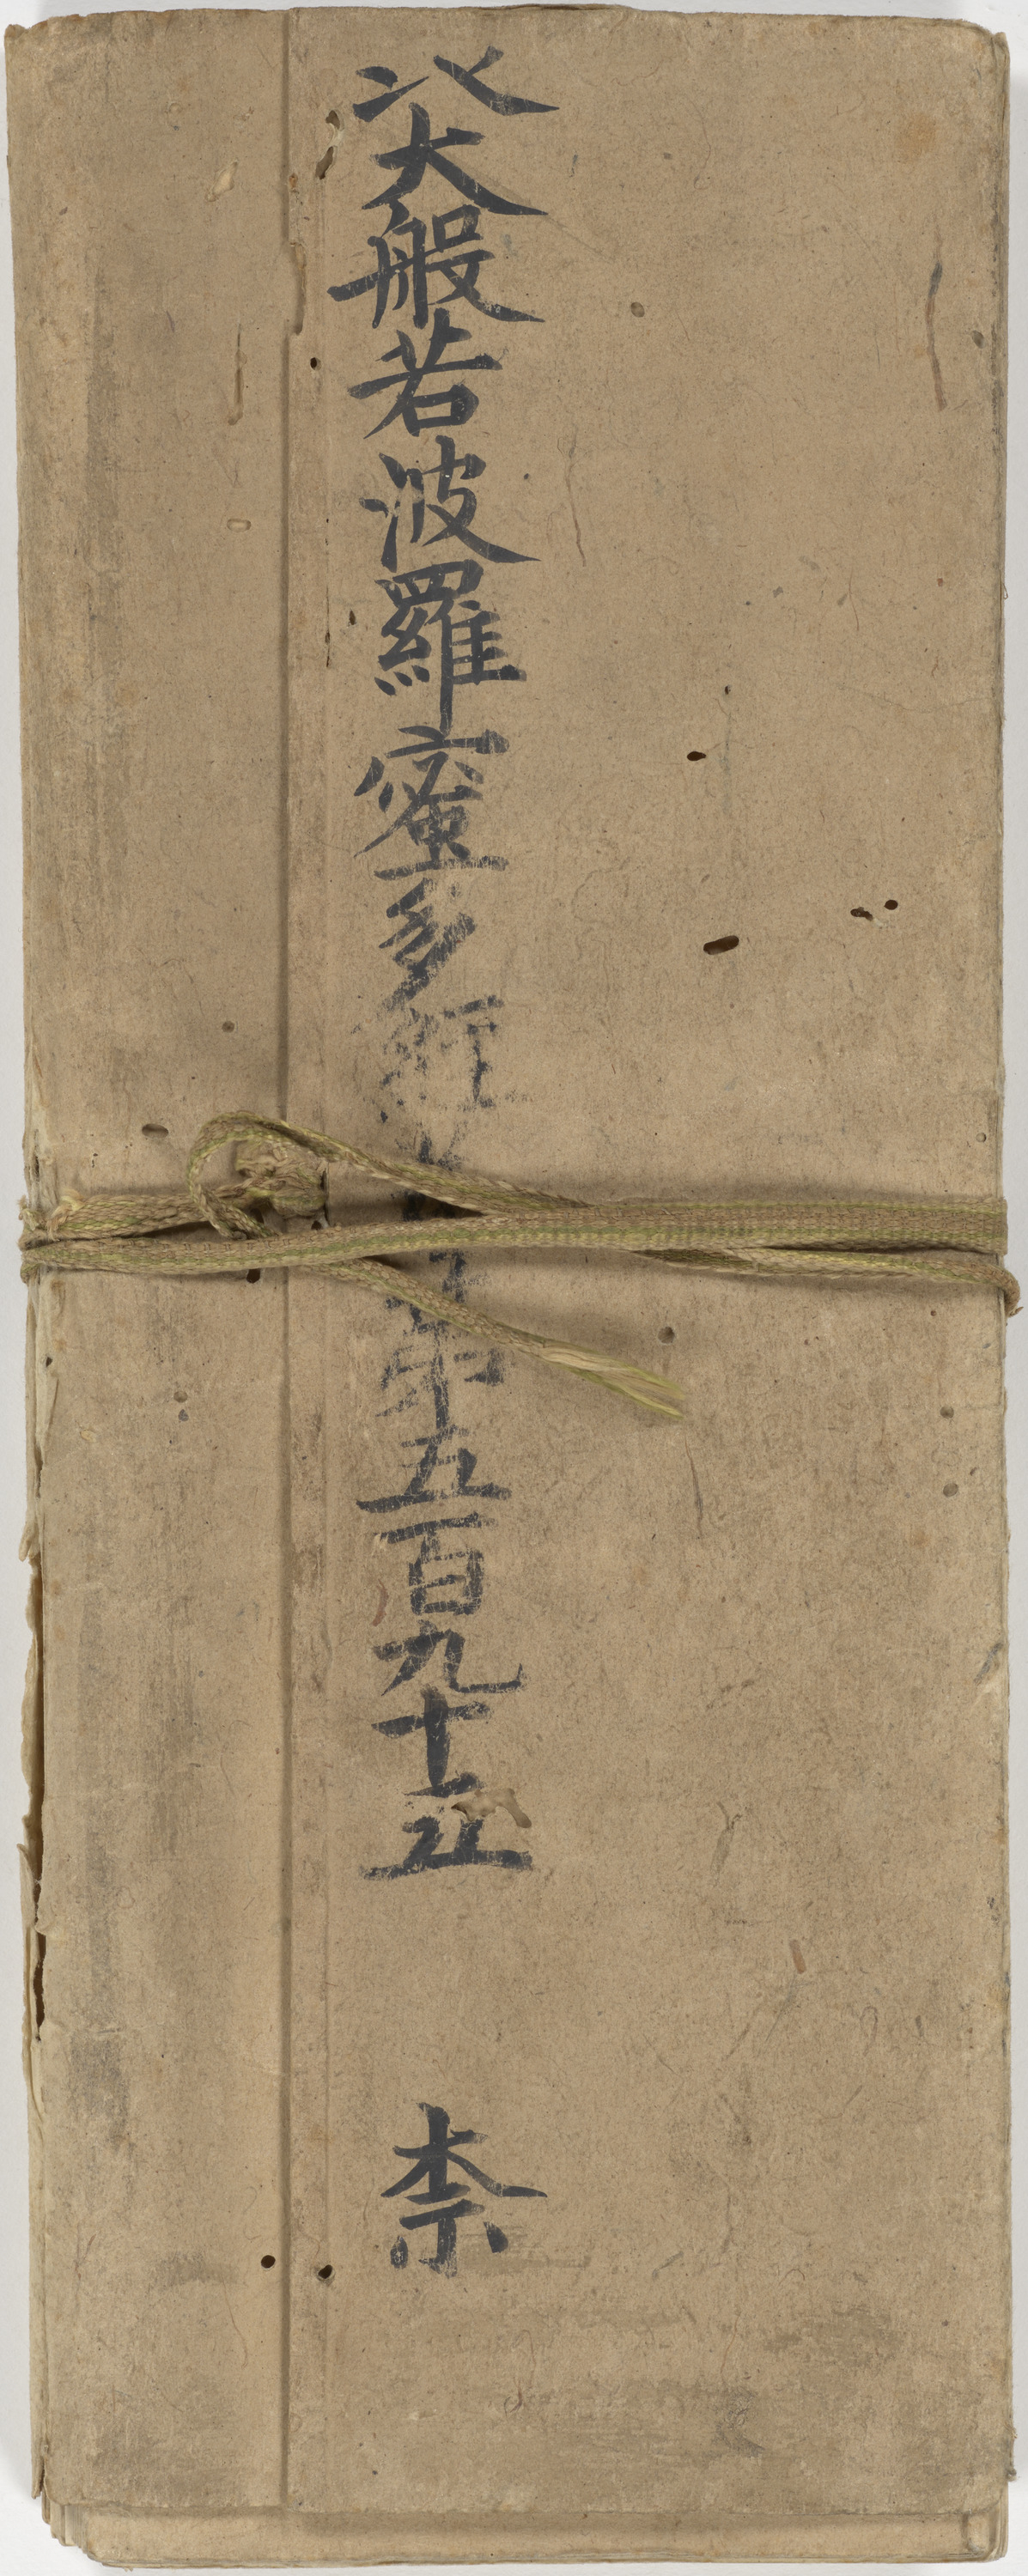 大般若波羅蜜多經卷第五百九十五 柰